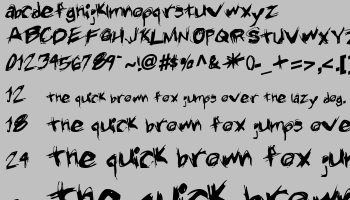 abcdefghijklmnopqrstuvwxyz
ABCDEFGHIJKLMNOPQRSTUVWXYZ
0123456789¨~!@#$%^&*()-_+=>,<.[
12 the quick brown fox jumps over the lazy dog.
18 the quick brown fox jumps ove
24 the quick brown fox ju
the quick brown